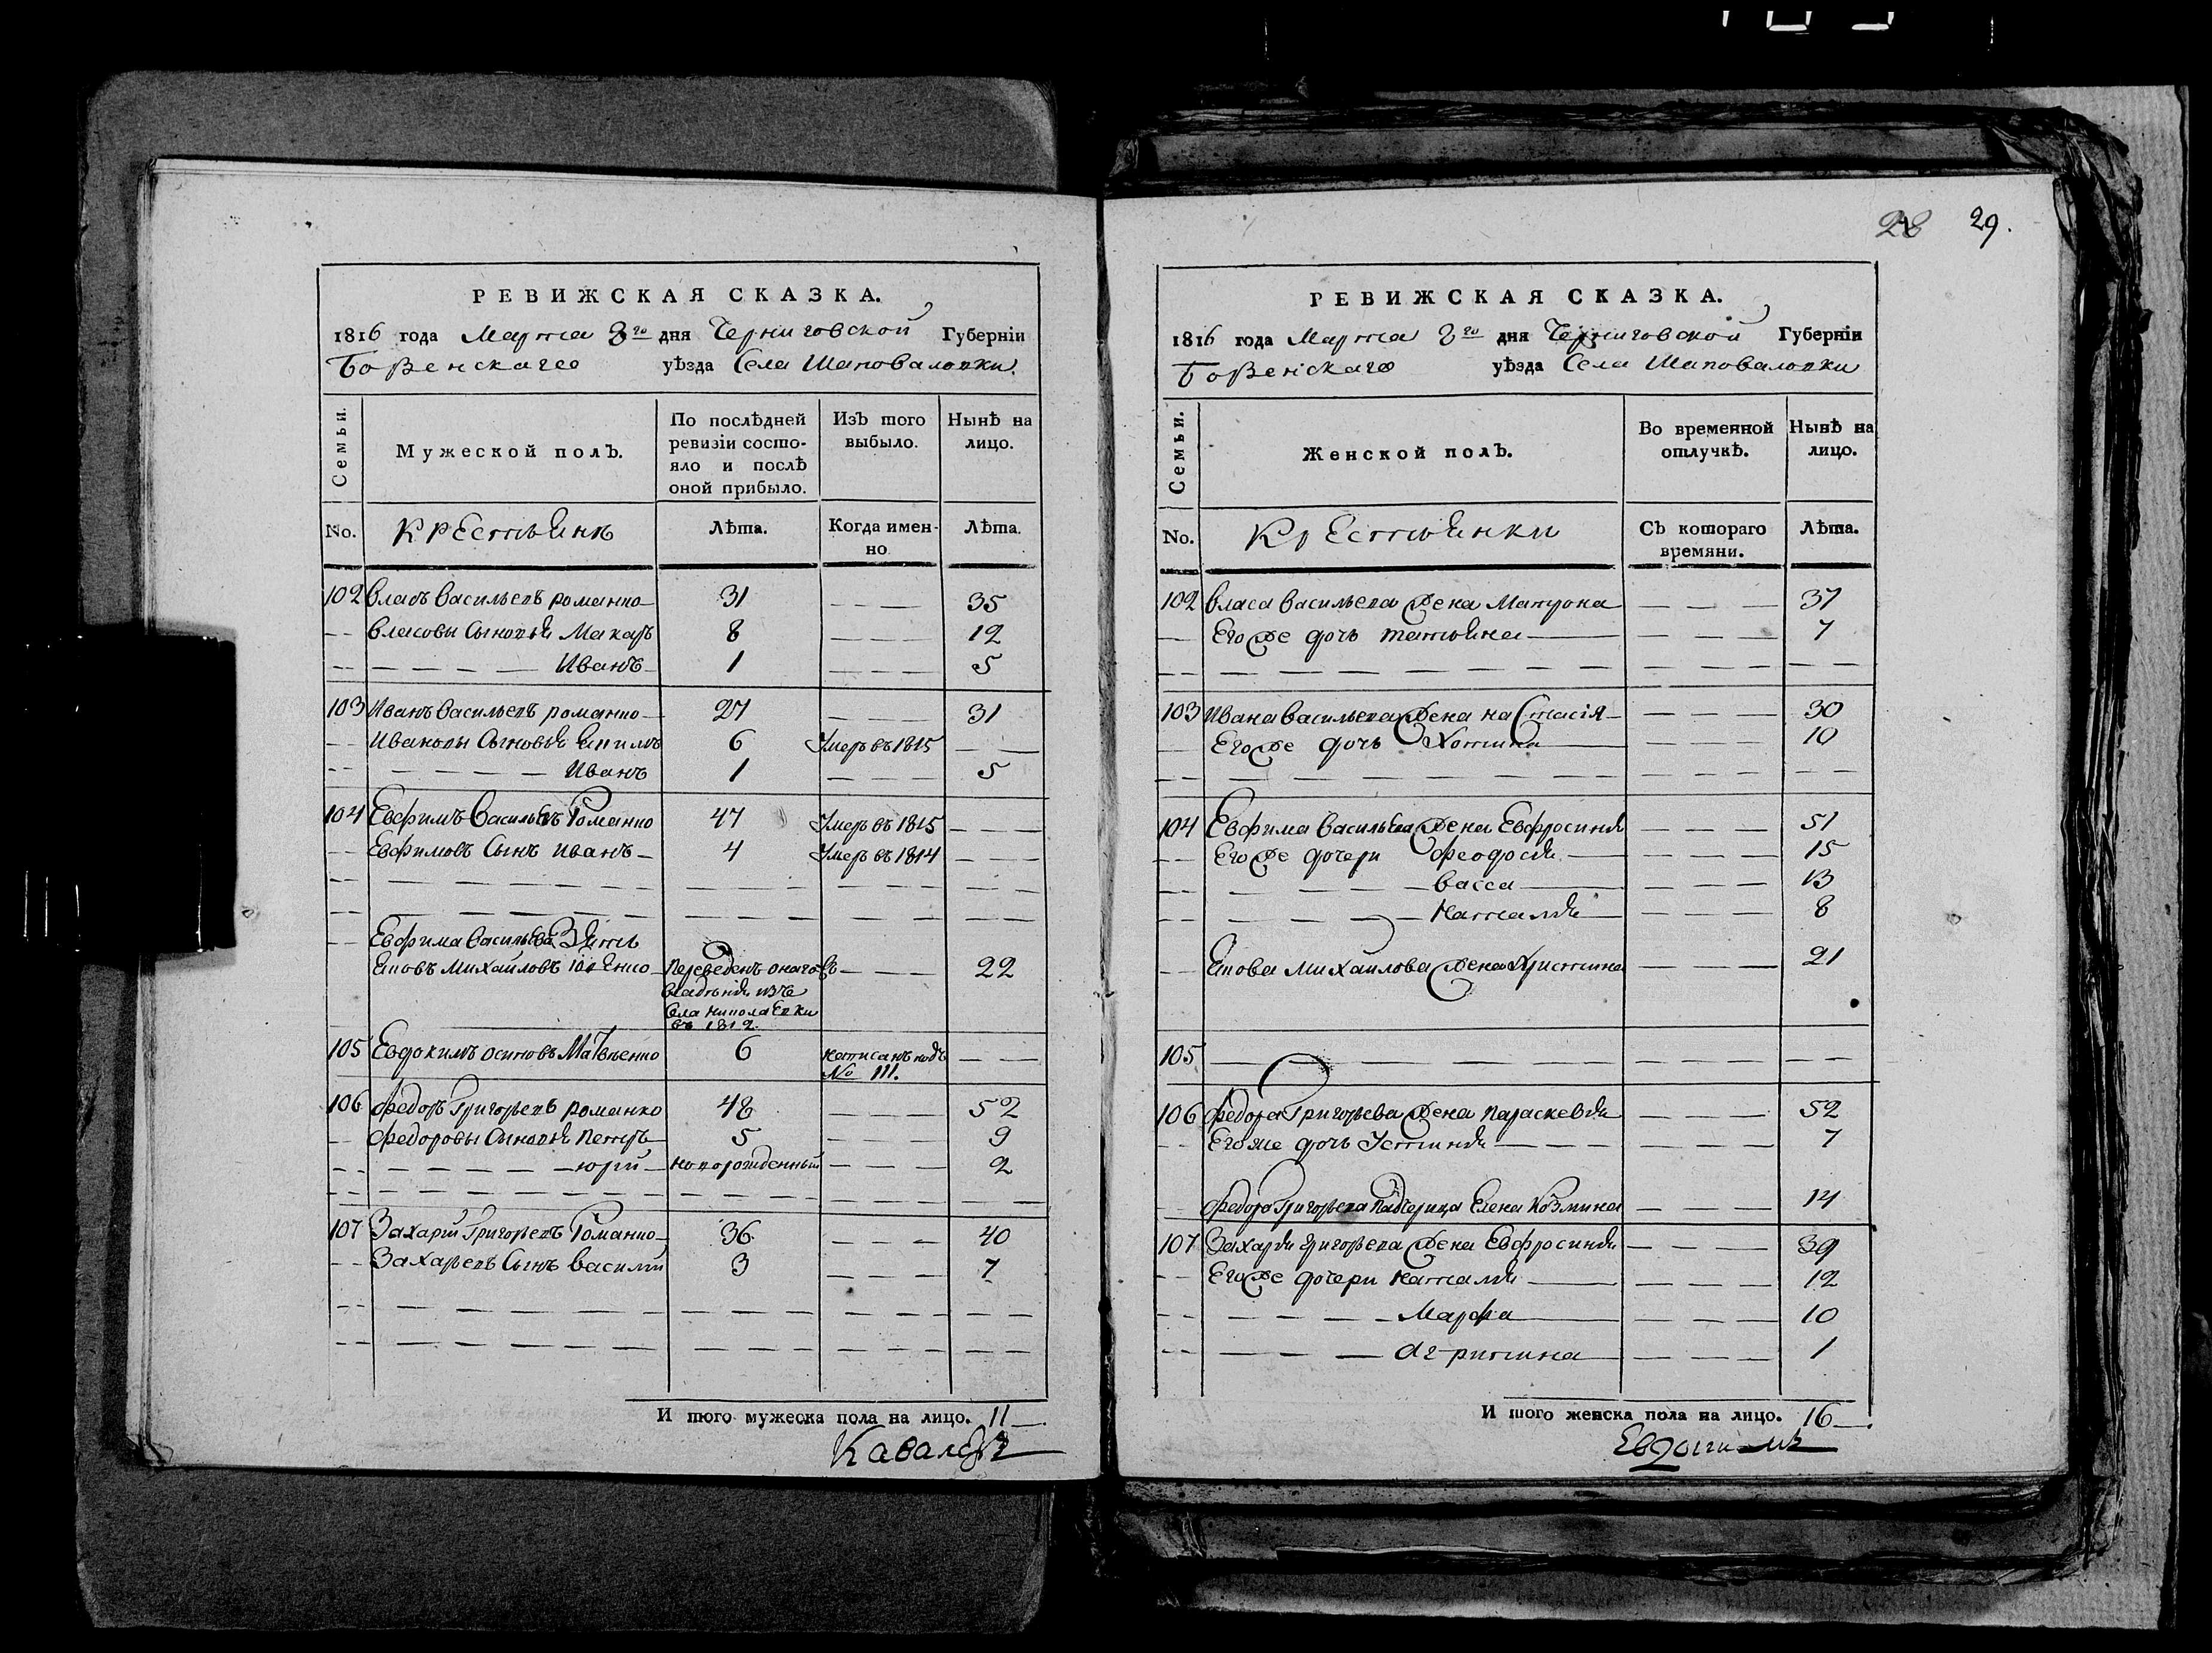 РЕВИЖСКАЯ СКАЗКА.
1816 года Марта 8го дня Черниговской Губерніи
Борзенскаго уѣзда Села Шаповаловки.
Семьи. Мужеской полъ. По послѣдней ревизіи состояло и послѣ оной прибыло. Изъ того выбыло. Нынѣ на лицо.
No. Крестьянъ Лѣта. Когда именно Лѣта.
102 Власъ Васильевъ романко 31 — — — 35
— — Власовы Сыновья Макаръ 8 — — — 12
— — — — — — — Иванъ 1 — — — 5
103 Иванъ Васильевъ романко 27 — — — 31
— — Ивановы Сыновья 6 Умеръ въ 1815 — —
— — — — — — — Иванъ 1 — — — 5
104 Евфимъ Васильевъ Романко 47 Умеръ въ 1815 — — —
— — Евфимовъ Сынъ Иванъ 4 Умеръ въ 1814 — — —
— — Евфима Васильева Зять
Михайловъ Переведенъ онаго въ — — — 22
владѣнія изъ
Села Николаевки
въ 1812.
105 Евдокимъ осиповъ Матвѣенко 6 написанъ подъ — —
No 111.
106 Федоръ Григорьевъ романко 48 — — — 52
— Федоровы Сыновья Петръ 5 — — 9
— — — — — — — юрій новорожденный — — — 2
107 Захарій Григорьевъ Романко 36 — — — 40
— — Захарьевъ Сынъ Василій 3 — — — 7
И того мужеска пола на лицо. 11
28 29.
РЕВИЖСКАЯ СКАЗКА.
1816 года Марта 8го дня Черниговской Губерніи
Борзенскаго уѣзда Села Шаповаловки
Семьи. Женской полъ. Во временной отлучкѣ. Нынѣ на лицо.
No. Крестьянки Съ котораго времяни. Лѣта.
102 Власа Васильева жена Матрона — — — 37
— Его же дочь татьяна — — — 7
103 Ивана Васильева жена настасія — — — 30
— Его же дочь — — — 10
104 Евфима Васильева жена Евфросинія — — — 51
— — Его же дочери Феодосія — — — 15
— — — — — Васса — — — 13
— — — — — Наталія — — — 8
— — Михайлова жена Христина — — — 21
105 — — — — — —
106 Федора Григорьева жена параскевія — — — 52
— — Его же дочь Устинія — — — 7
— Федора Григорьева Падчерица Елена Козмина — — — 14
107 Захарія григорьева жена Евфросинія — — — 39
— — Его же дочери наталія — — — 12
— — — — — — Марфа — — — 10
— — — — — агрипина — — — 1
И того женска пола на лицо. 16